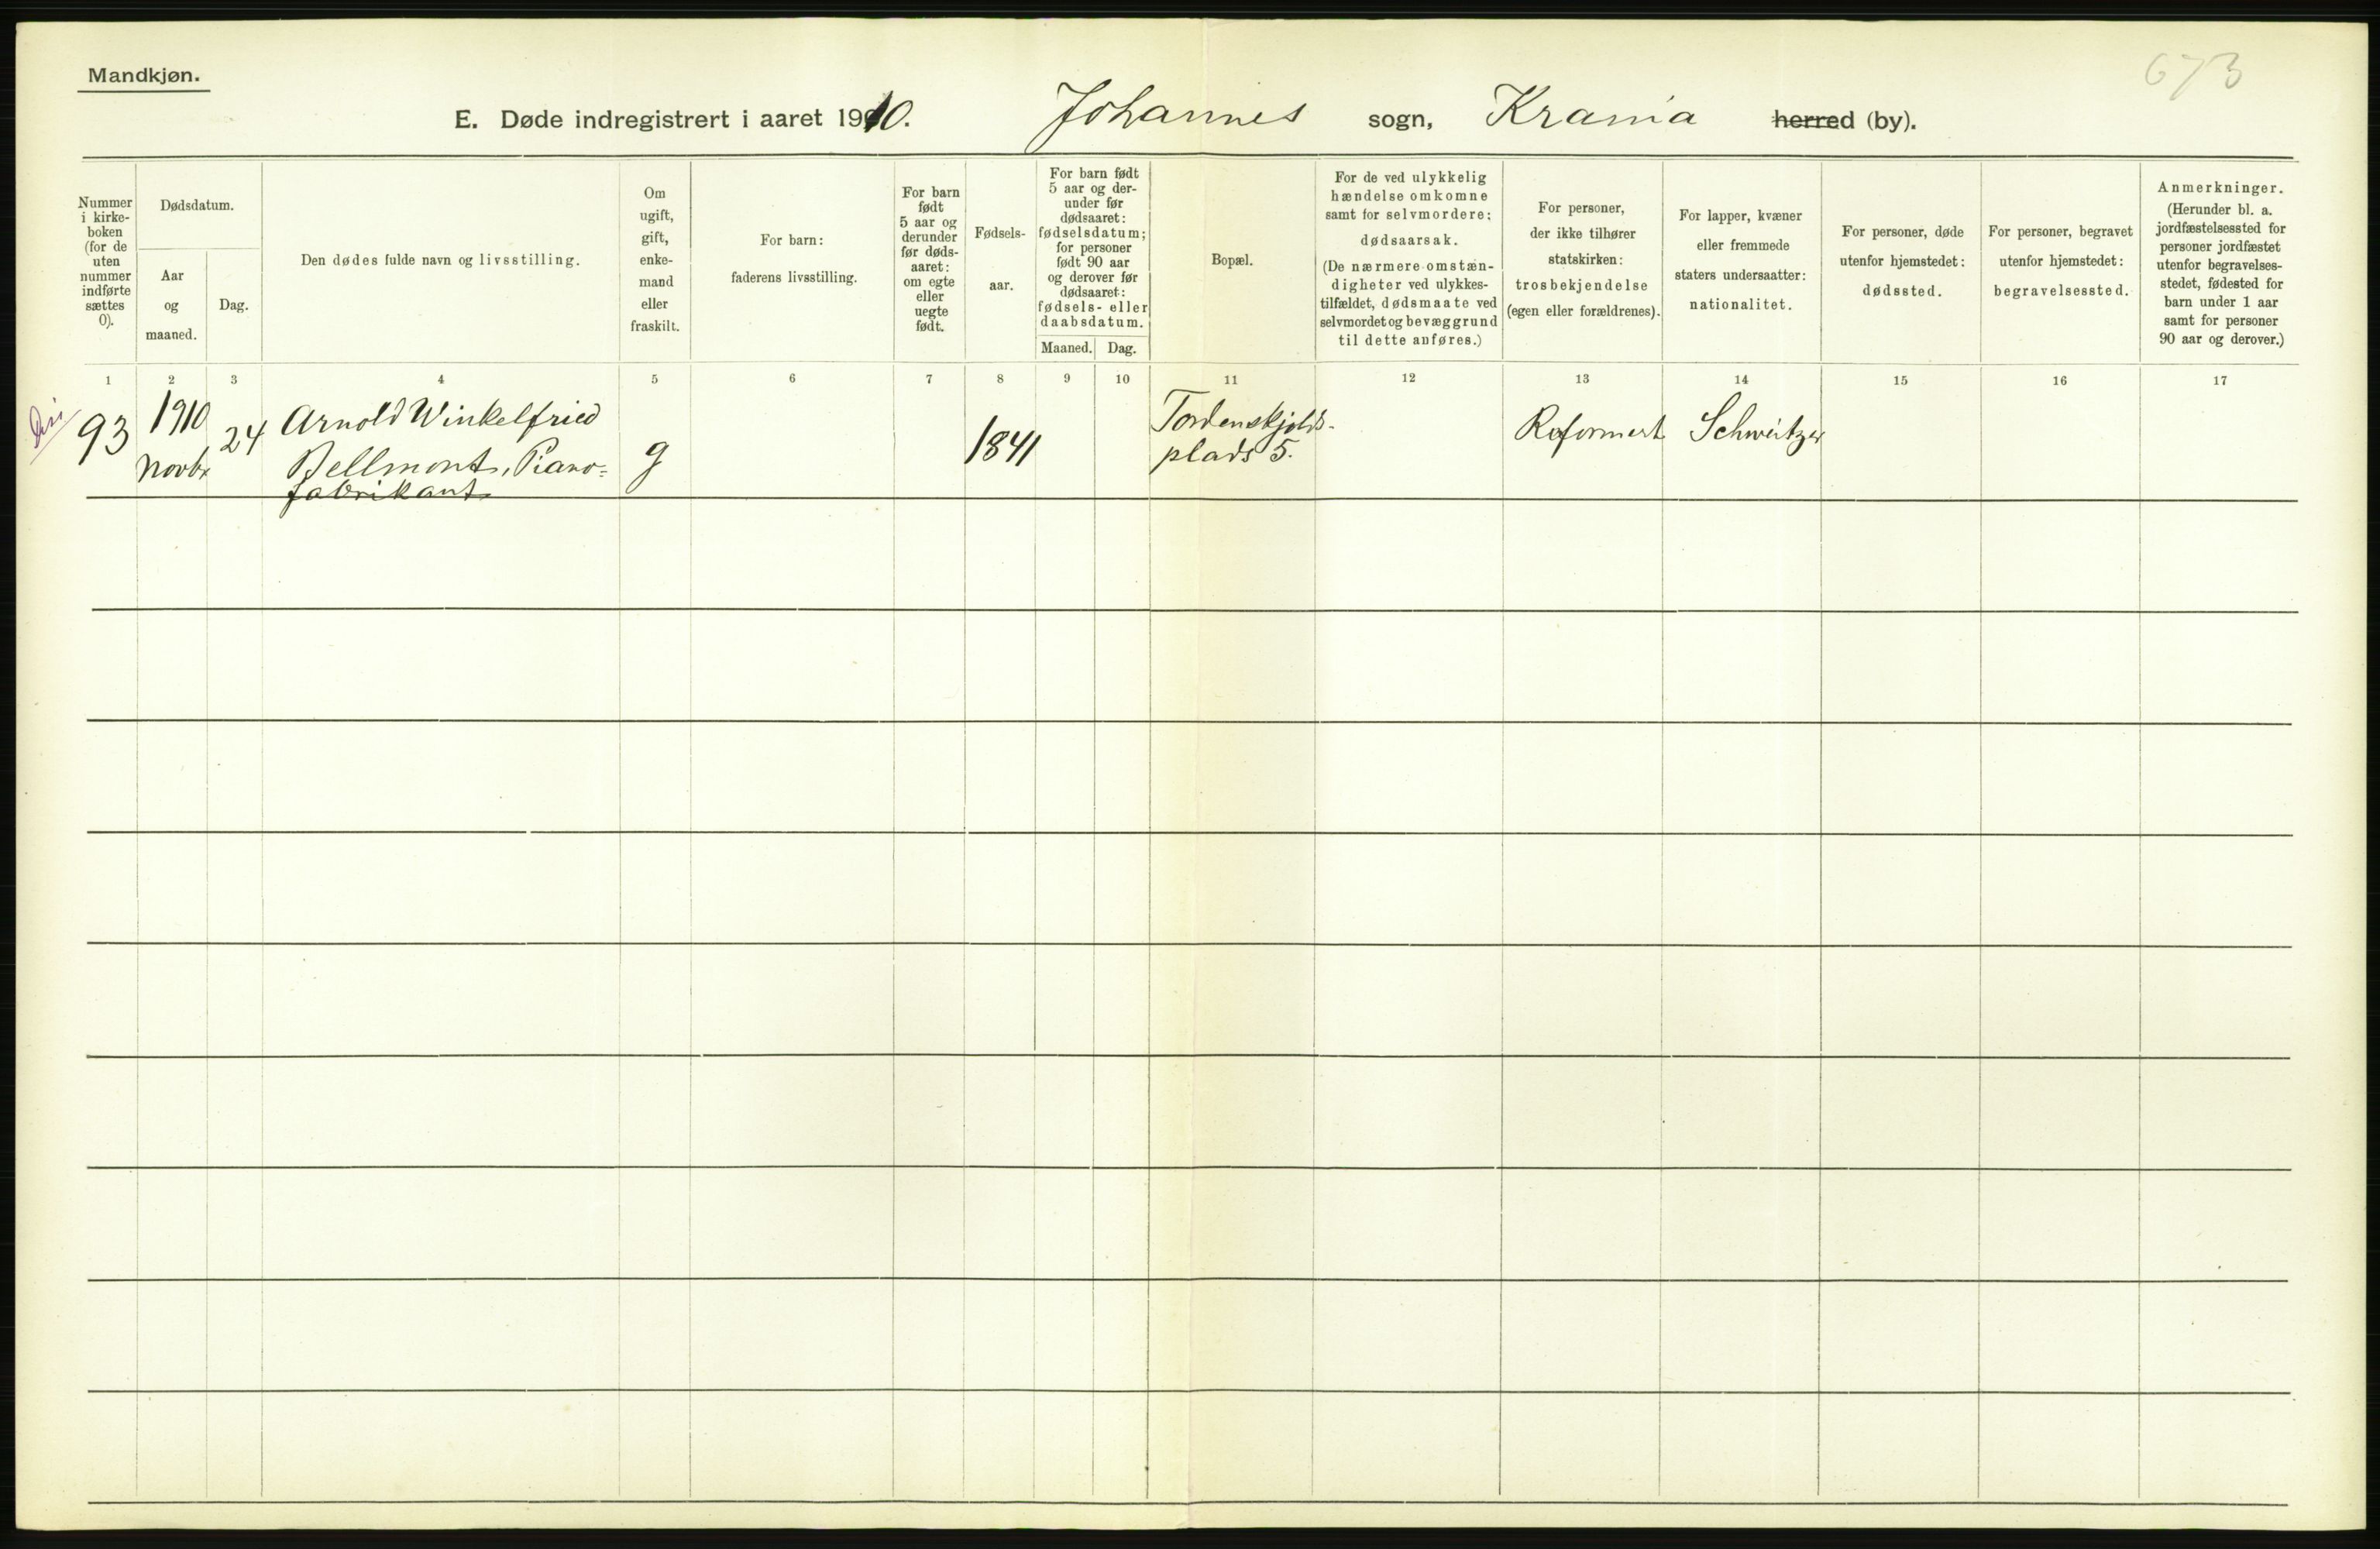 Mandkjøn.
673
E. Døde indregistrert i aaret 1910. Johannes sogn, Krania herred (by).
Nummer
i kirke-
boken
(for de
uten
nummer
indførte
sættes
0).
Dødsdatum.
Aar
og
maaned.
Dag.
Den dødes fulde navn og livsstilling.
Om
ugift,
gift,
enke-
mand
eller
fraskilt.
For barn:
faderens livsstilling.
For barn
født
5 aar og
derunder
før døds-
aaret:
om egte
eller
uegte
født.
Fødsels-
aar.
For barn født
5 aar og der-
under før
dødsaaret:
fødselsdatum;
for personer
født 90 aar
og derover før
dødsaaret:
fødsels- eller
daabsdatum.
Maaned. Dag.
Bopæl.
For de ved ulykkelig
hændelse omkomne
samt for selvmordere:
dødsaarsak.
(De nærmere omstæn-
digheter ved ulykkes-
tilfældet, dødsmaate ved
selvmordet og bevæggrund
til dette anføres.)
For personer,
der ikke tilhører
statskirken:
trosbekjendelse
(egen eller forældrenes).
For lapper, kvæner
eller fremmede
staters undersaatter:
nationalitet.
For personer, døde
utenfor hjemstedet:
dødssted.
For personer, begravet
utenfor hjemstedet:
begravelsessted.
Anmerkninger.
(Herunder bl. a.
jordfæstelsessted for
personer jordfæstet
utenfor begravelses-
stedet, fødested for
barn under 1 aar
samt for personer
90 aar og derover.)
1 2 3 4 5 6 7 8 9 10 11 12 13 14 15 16 17
93
1910
Novbr
24
Arnold Winkelfried
Bellmont, Piano-
fabrikant
g
1841
Tordenskjolds-
plads 5.
Reformert
Schweitzer